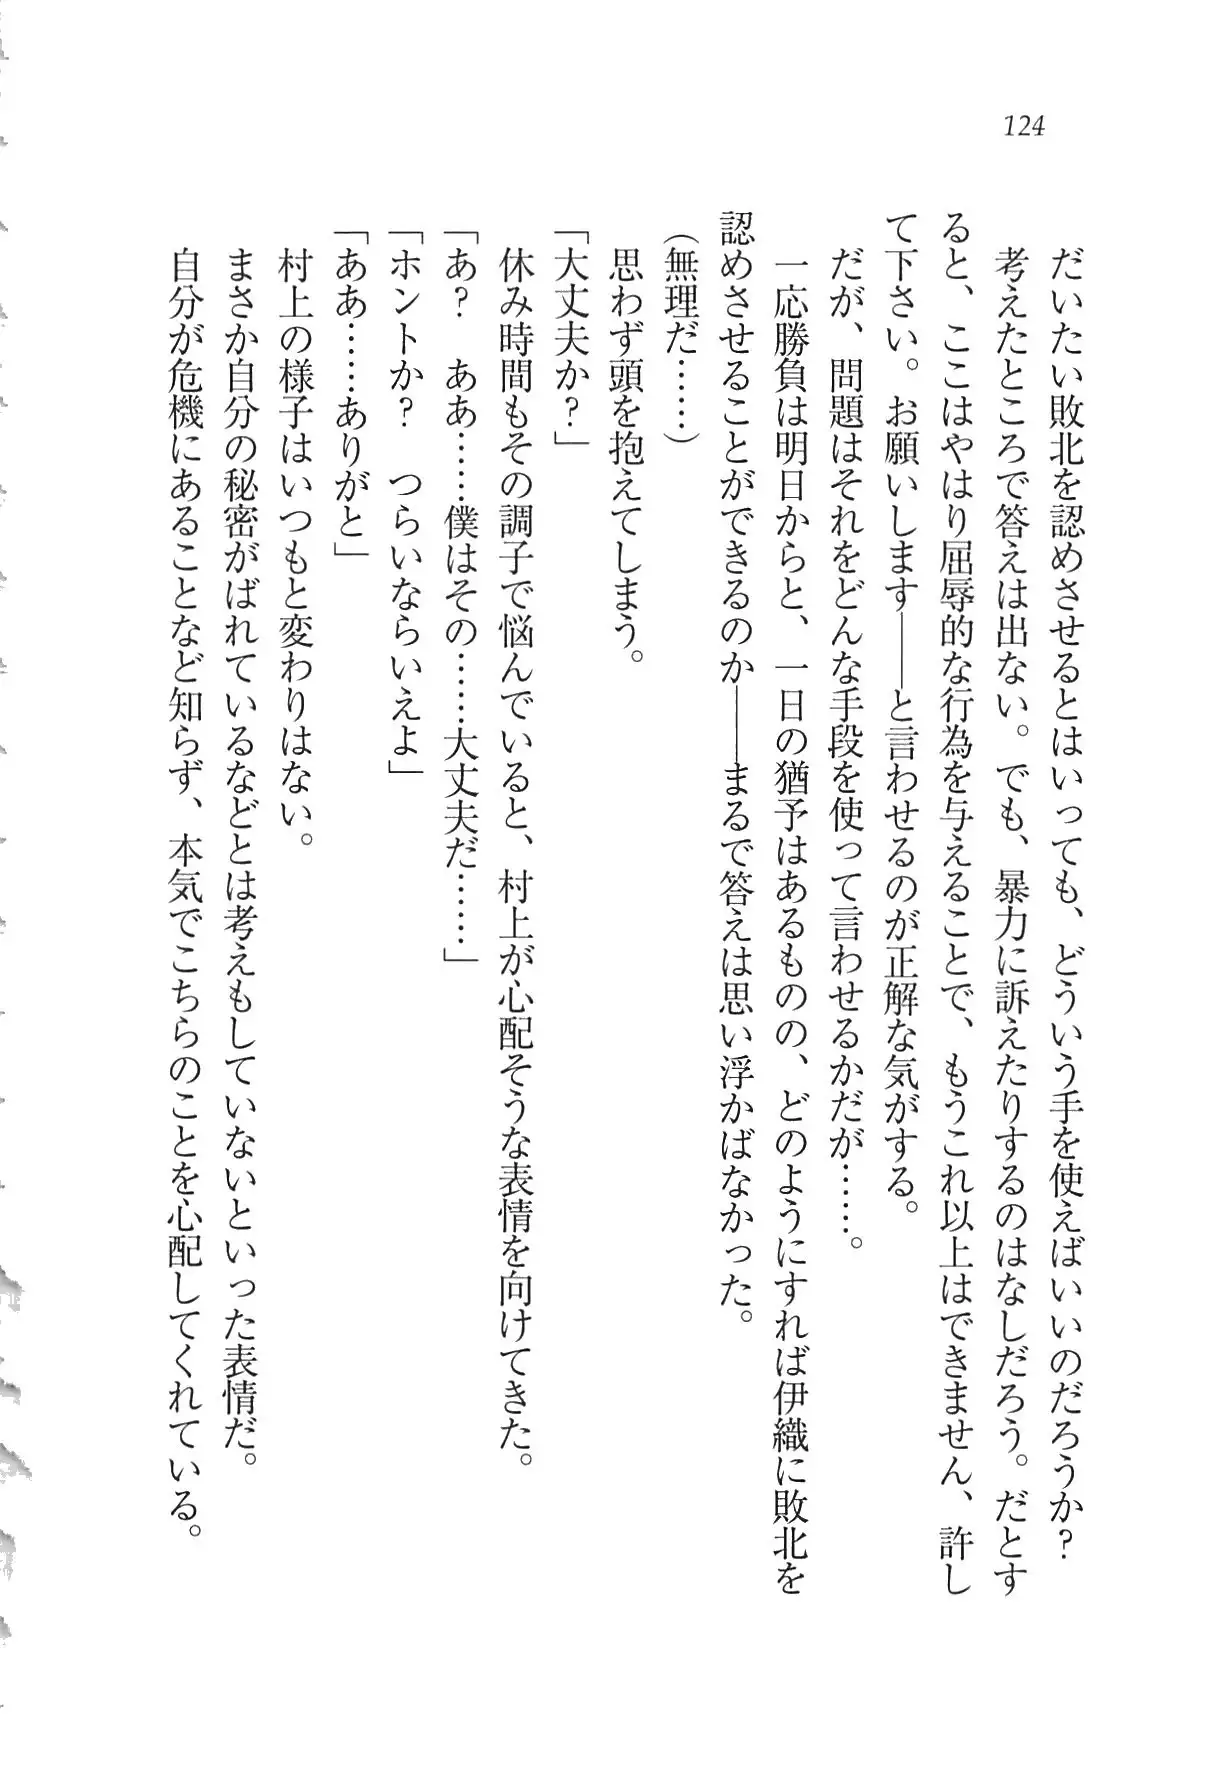 124
だいたい敗北を認めさせるとはいっても、どういう手を使えばいいのだろうか？
考えたところで答えは出ない。でも、暴力に訴えたりするのはなしだろう。だとす
ると、ここはやはり屈辱的な行為を与えることで、もうこれ以上はできません、許し
て下さい。お願いします――と言わせるのが正解な気がする。
だが、問題はそれをどんな手段を使って言わせるかだが……。
一応勝負は明日からと、一日の猶予はあるものの、どのようにすれば伊織に敗北を
認めさせることができるのか――まるで答えは思い浮かばなかった。
（無理だ……）
思わず頭を抱えてしまう。
「大丈夫か？」
休み時間もその調子で悩んでいると、村上が心配そうな表情を向けてきた。
「あ？　ああ……僕はその……大丈夫だ……」
「ホントか？　つらいならいえよ」
「ああ……ありがと」
村上の様子はいつもと変わりはない。
まさか自分の秘密がばれているなどとは考えもしていないといった表情だ。
自分が危機にあることなど知らず、本気でこちらのことを心配してくれている。